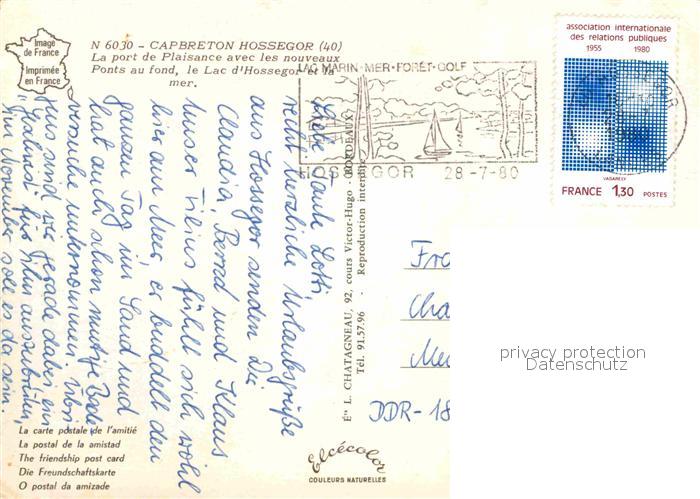 Image
de France
Imprimée
en France
N 6030 - CAPBRETON HOSSEGOR (40)
La port de Plaisance avec les nouveaux
Ponts au fond, le Lac d'Hossegor et la
mer.
LAC MARIN·MER·FORÊT·GOLF
HOSSEGOR 28-7-80
association internationale
des relations publiques
1955 1980
VASARELY
FRANCE 1,30 POSTES
Liebe Tante Lotti,
recht herzliche Urlaubsgrüße
aus Hossegor senden Dir
Claudia, Bernd und Klaus
Unser Filius fühlt sich wohl
hier am Meer, er buddelt den
ganzen Tag im Sand und
hat auch schon mutige Bade-
versuche unternommen. Übri-
gens sind wir gerade dabei ein
für ihn
Im November soll es da sein.
Éts L. CHATAGNEAU, 92, cours Victor-Hugo - BORDEAUX
Tél. 91.57.96 - Reproduction interdite
Fro
Cha
Me
DDR-18
privacy protection
Datenschutz
La carte postale de l'amitié
La postal de la amistad
The friendship post card
Die Freundschaftskarte
O postal da amizade
Elcécolor
COULEURS NATURELLES